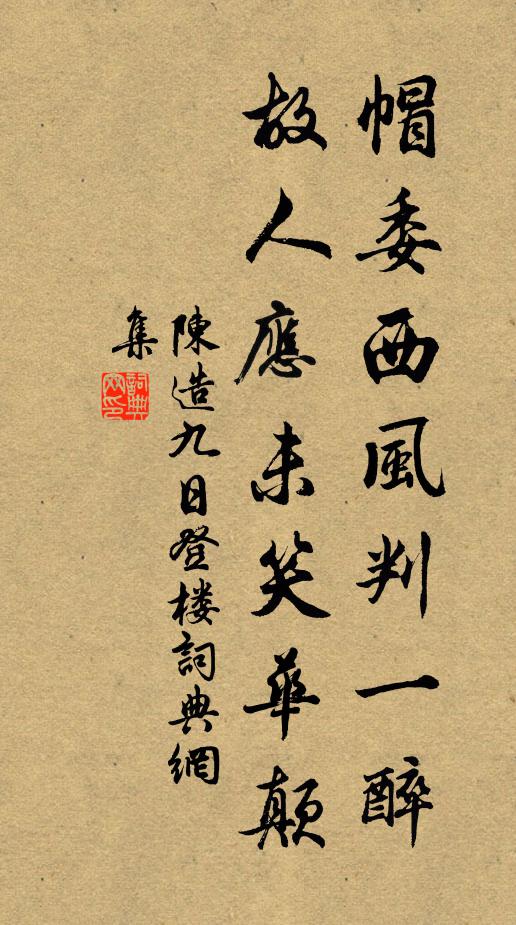 帽委西風判一醉
故人應未笑華顛
陳造九日登楼詞典網
集
詞典
网印